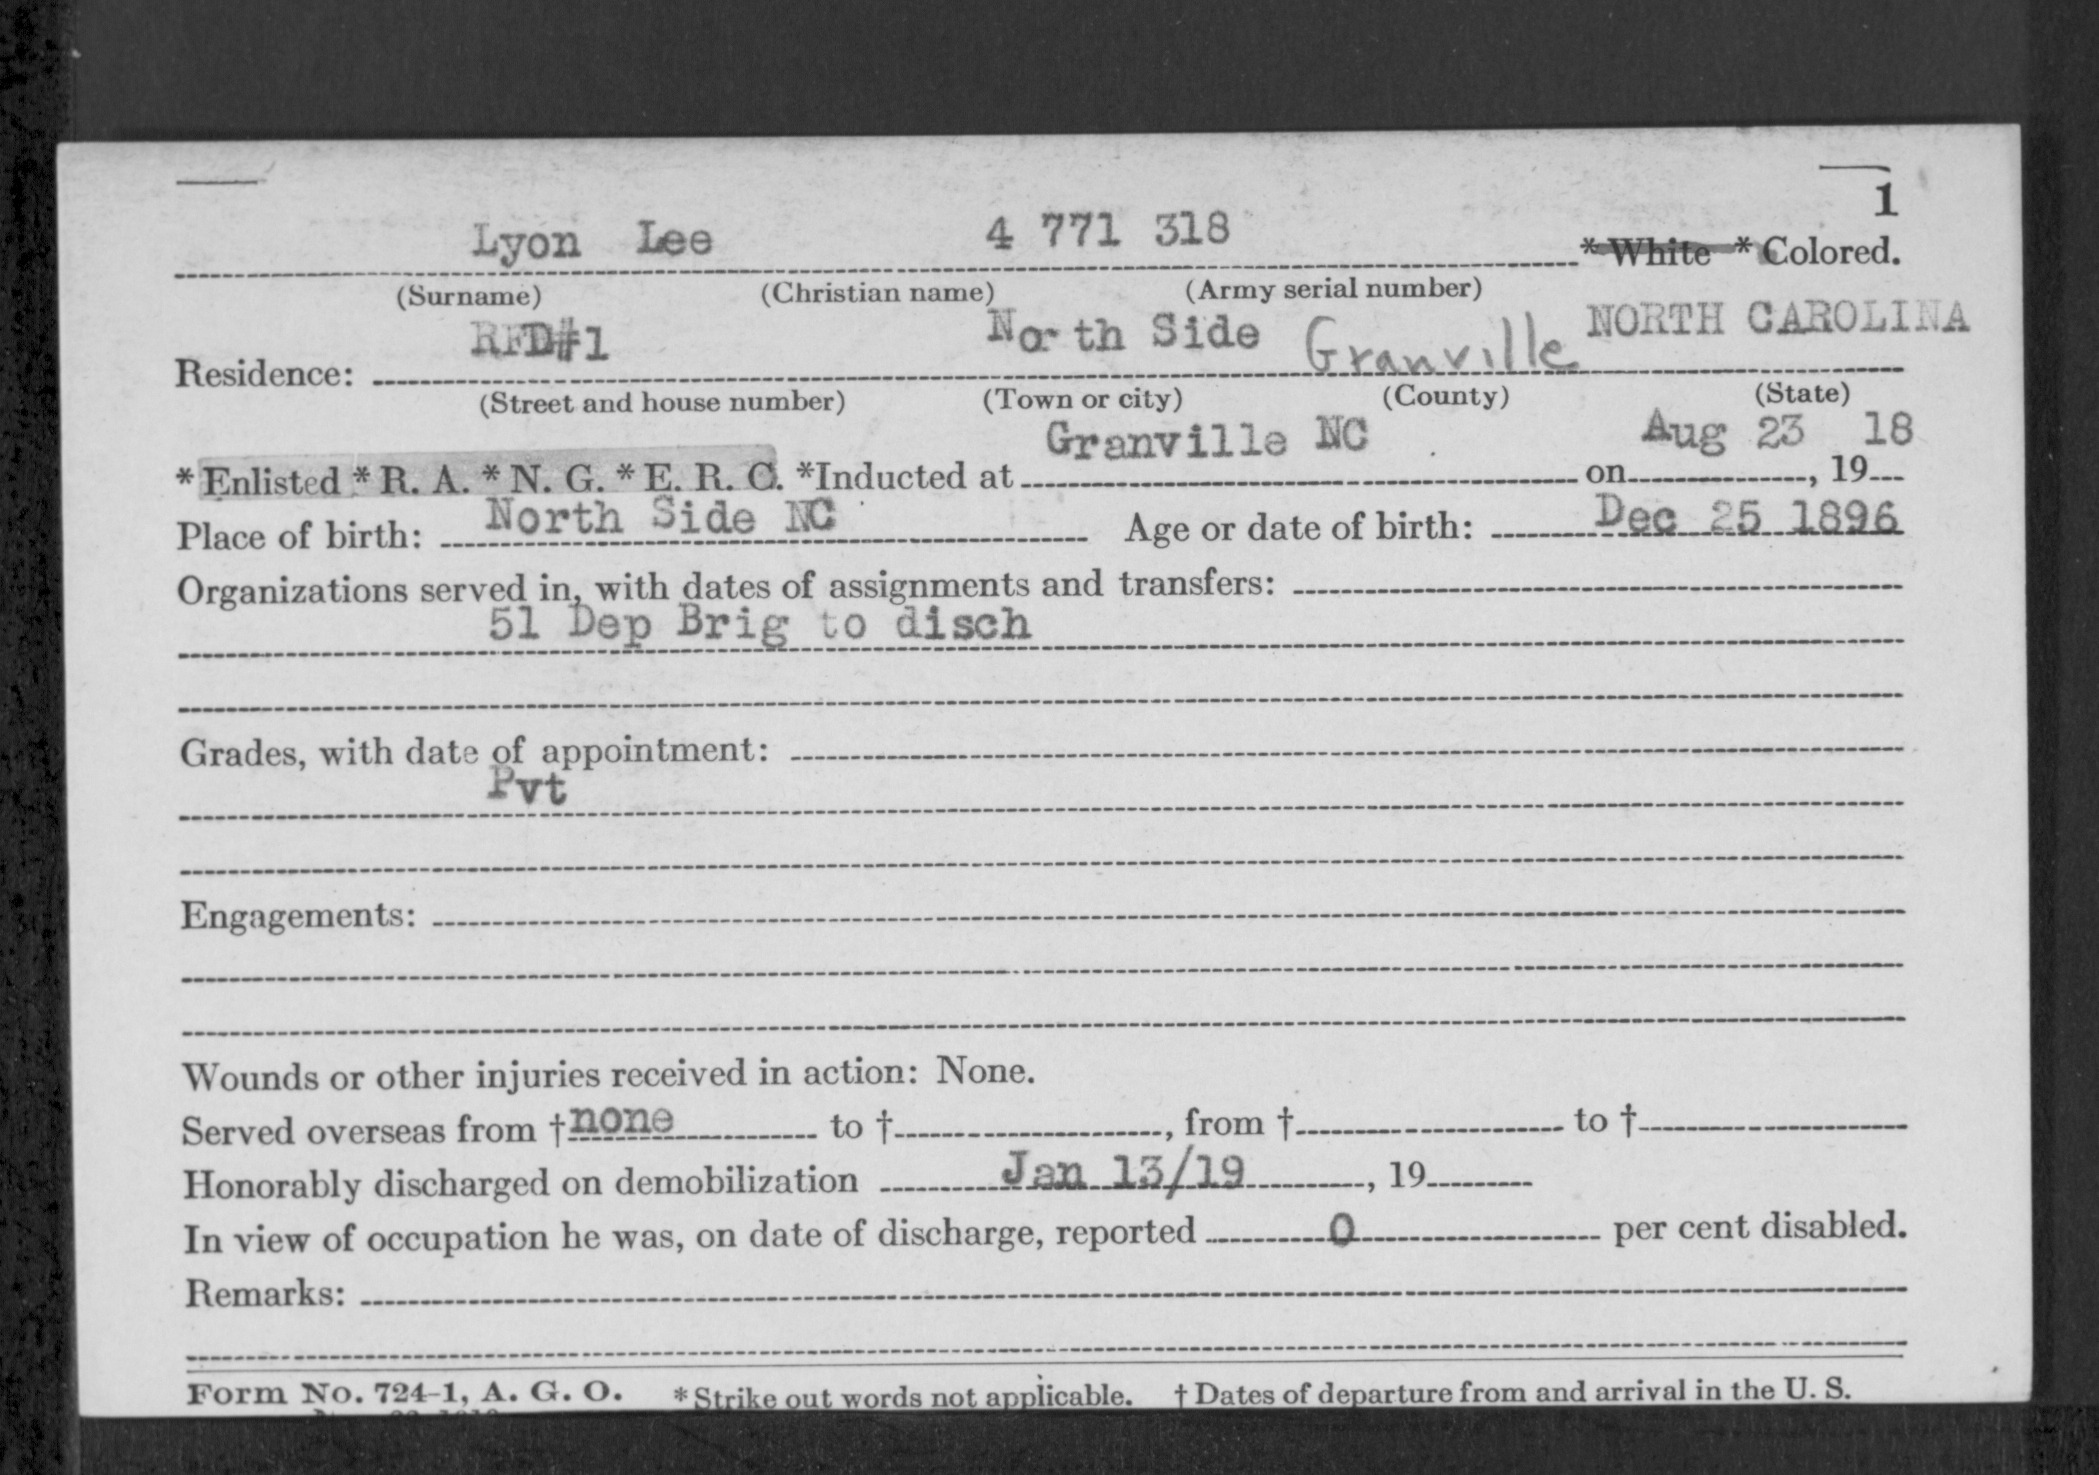 1
Lyon Lee 4 771 318 * White * Colored.
(Surname) (Christian name) (Army serial number)
RFD#1 North Side Granville NORTH CAROLINA
Residence:
(Street and house number) (Town or city) (County) (State)
Granville NC Aug 23 18
* Enlisted * R. A. * N. G. * E. R. C. *Inducted at on , 19
Place of birth: North Side NC Age or date of birth: Dec 25 1896
Organizations served in, with dates of assignments and transfers:
51 Dep Brig to disch
Grades, with date of appointment:
Pvt
Engagements:
Wounds or other injuries received in action: None.
Served overseas from †none to † , from † to †
Honorably discharged on demobilization Jan 13/19 , 19
In view of occupation he was, on date of discharge, reported 0 per cent disabled.
Remarks:
Form No. 724-1, A. G. O. * Strike out words not applicable. † Dates of departure from and arrival in the U. S.